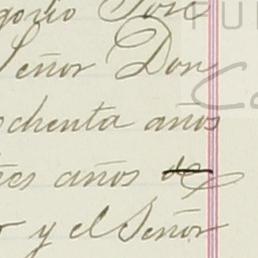 gorio José
Señor Don
ochenta años
tres años de
r y el Señor